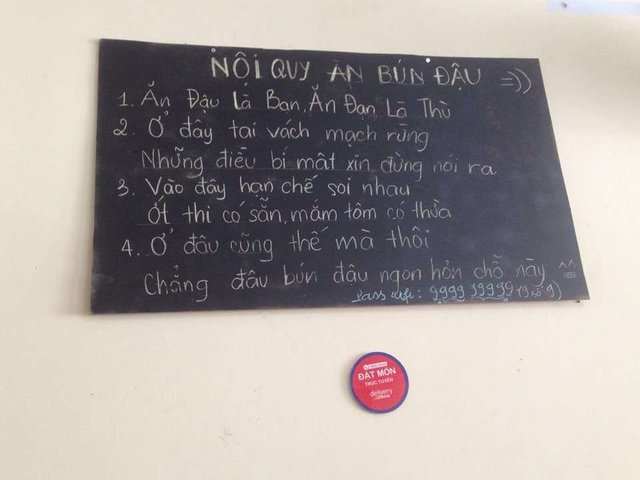 NỘI QUY ĂN BÚN ĐẬU =))
1. Ăn Đậu Là Bạn, Ăn Đạn Là Thù
2. Ở đây tai vách mạch rừng
Những điều bí mật xin đừng nói ra
3. Vào đây hạn chế soi nhau
Ớt thì có sẵn, mắm tôm có thừa
4. Ở đâu cũng thế mà thôi
Chẳng đâu bún đậu ngon hơn chỗ này ^^
Pass wifi: 9999 99999 (9 số 9)
ĐẶT MÓN
TRỰC TUYẾN
delivery